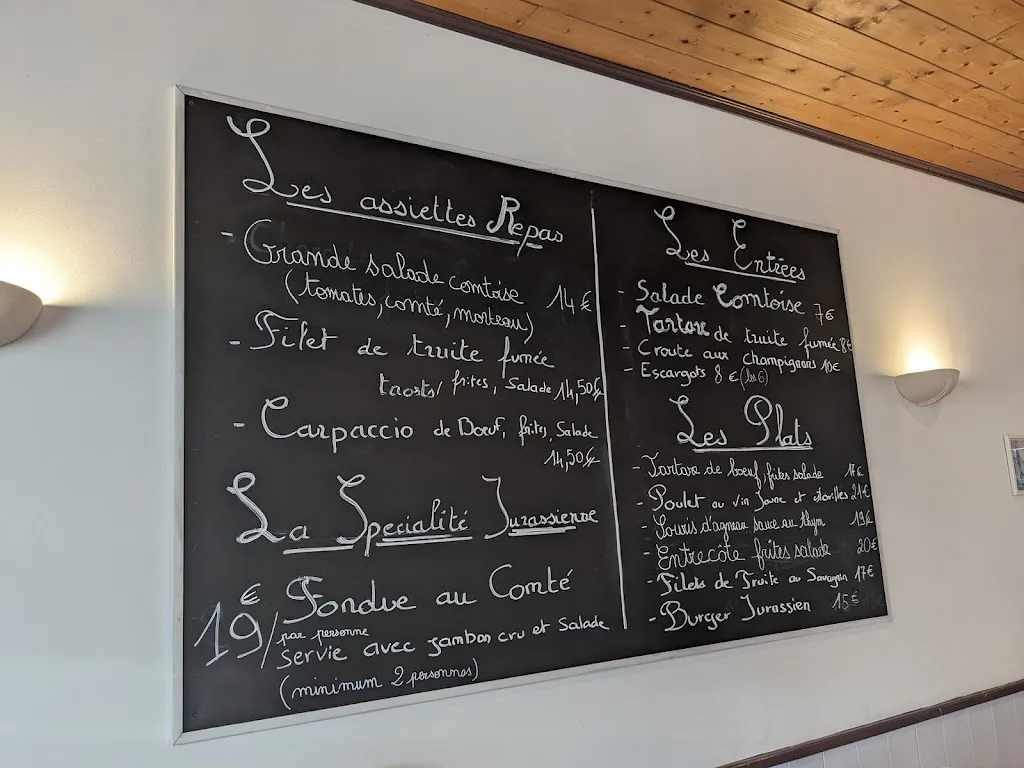 Les assiettes Repas
- Grande salade comtoise 14 €
(tomates, comté, morteau)
- Filet de truite fumée
taosts/ frites, Salade 14,50€
- Carpaccio de Bœuf, frites, Salade
14,50€
La Spécialité Jurassienne
Fondue au Comté
19€/par personne
servie avec jambon cru et Salade
(minimum 2 personnes)
Les Entrées
- Salade Comtoise 7€
- Tartare de truite fumée 8€
- Croute aux champignons 10€
- Escargots 8 € (les 6)
Les Plats
- Tartare de boeuf, frites salade 17€
- Poulet au vin Jaune et Morilles 21€
- Souris d'agneau sauce au thym 19€
- Entrecôte frites salade 20€
- Filets de Truite au Savagnin 17€
- Burger Jurassien 15€